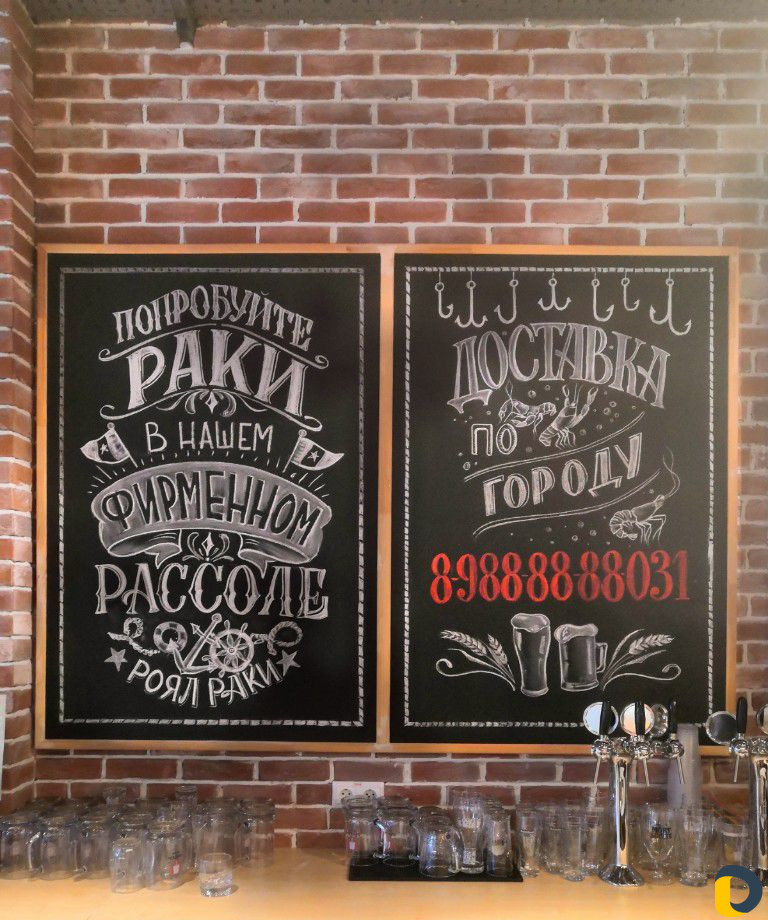 ПОПРОБУЙТЕ
РАКИ
В НАШЕМ
ФИРМЕННОМ
РАССОЛЕ
РОЯЛ РАКИ
ДОСТАВКА
ПО
ГОРОДУ
8-988-88-88031